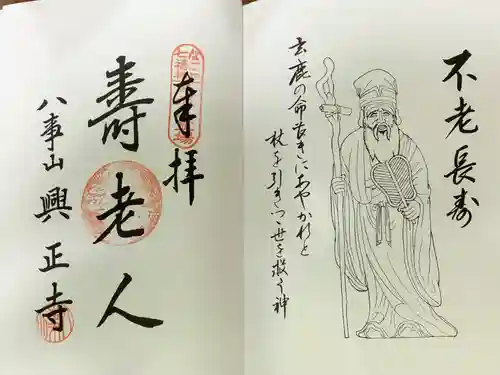 奉拝
壽老人
八事山 興正寺
不老長寿
玄鹿の命長きにあやかれと
杖を引きつゝ世を救う神